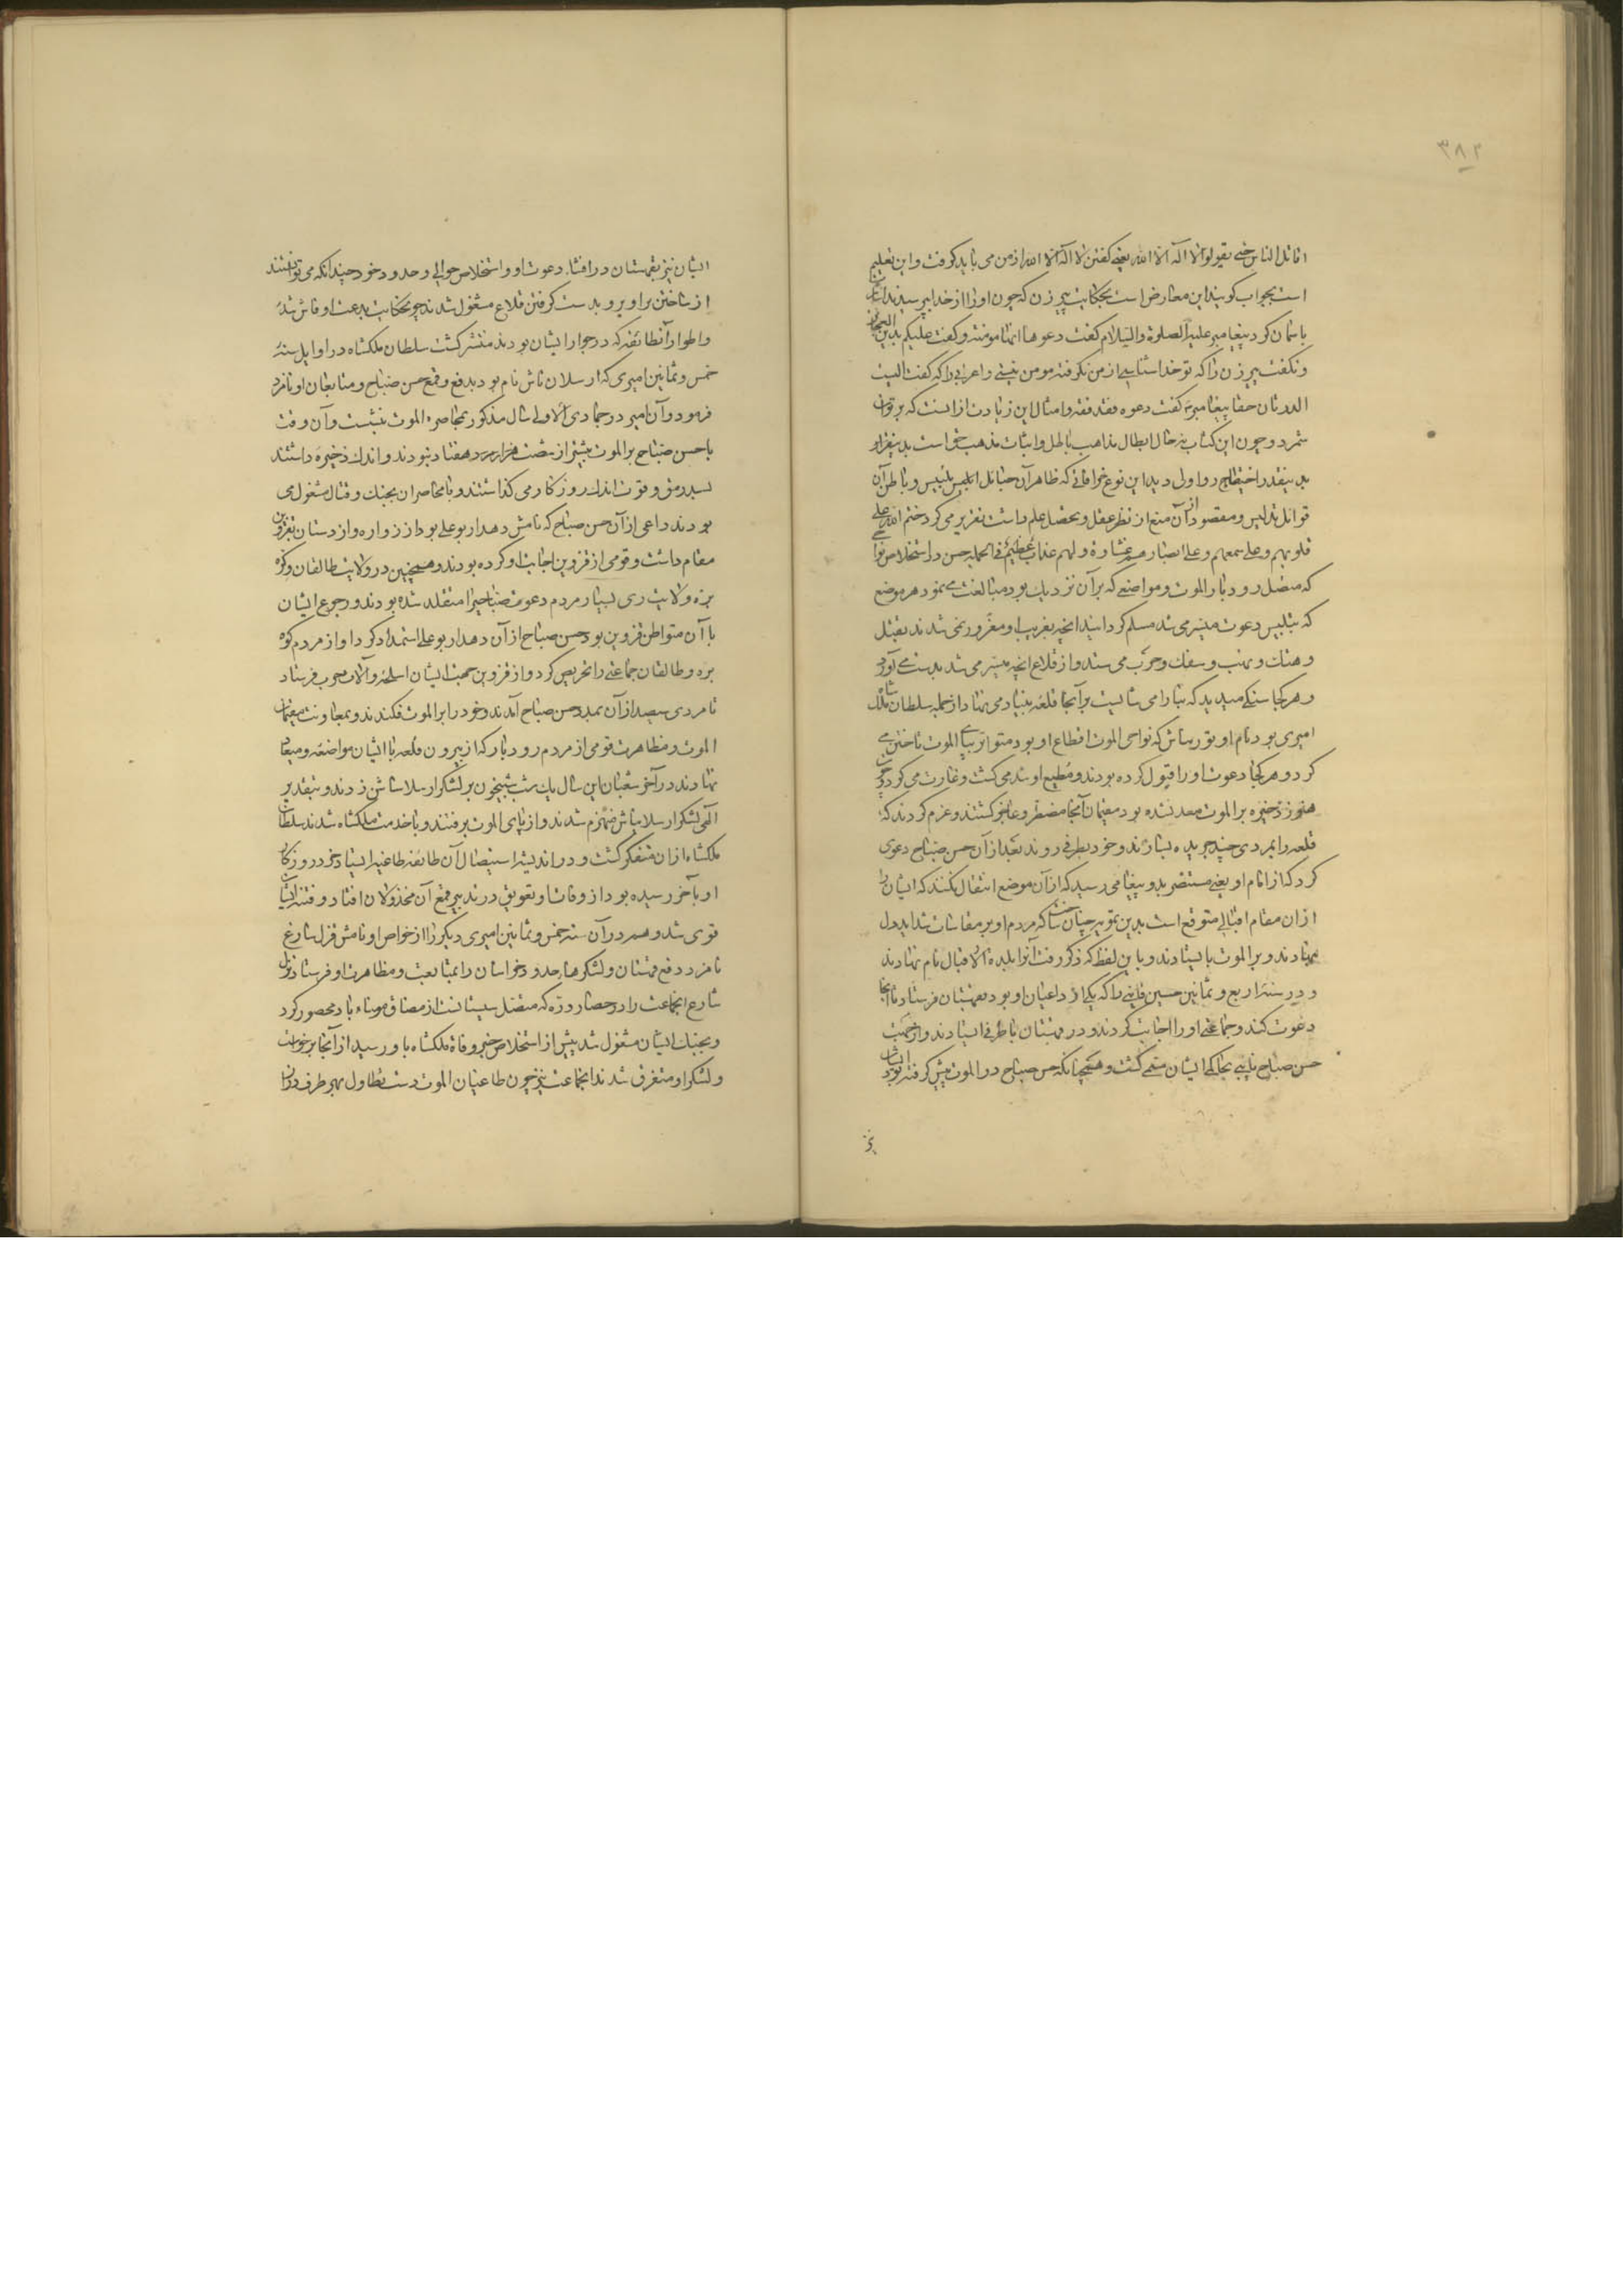 ۳۸۲
اقاتل الناس حتی یقولوا لا اله الا الله یعنی گفتن لا اله الا الله از من می باید گرفت و این تعلیم
است بجواب گویند این معارض است بحکایت پیر زن که چون او را از خدا پرسیدند اشارت
باسمان کرد پیغامبر علیه الصلوة والسلام گفت دعوها انها مومنة و گفت علیکم بدین العجائز
و نگفت پیر زن را که تو خدا شناسی از من نگرفته مومن نیستی و اعرابی را که گفت الیست
الله ثان حقا پیغامبر گفت دعوه فقد فقه و امثال این زیادت از انست که بر توان
شمرد و چون این کتاب نه حال ابطال مذاهب باطل و اثبات مذهب حق است بدینقرار
بدینقدر اختصار روا ولی دید این نوع خرافاتی که ظاهر آن حبائل ابلیس تلبیس و باطن آن
قوائل تدلیس و مقصود از آن منع از نظر عقل و تحصیل علم داشت تقریر می کرد ختم الله علی
قلوبهم و علی سمعهم و علی ابصارهم غشاوة و لهم عذاب عظیم فی الجمله حسن در استخلاص نواحی
که متصل رودبار الموت و مواضعی که بر آن نزدیک بود مبالغت می نمود هر موضع
که بتلبیس دعوت میسر می شد مسلم گردانید و انچه بفریب او مغرور نمی شدند بقتل
و هتک و نهب و سفک و حرب می ستد و از قلاع انچه میسر می شد بدست می آورد
و هر کجا سنگی میدید که بنا را می شایست بر آنجا قلعه بنیاد می نهاد از جمله سلطان ملکشاه
امیری بود نام او یورنتاش که نواحی الموت اقطاع او بود متواتر بپای الموت تاختن می
کرد و هر کجا دعوت او را قبول کرده بودند و مطیع او شده می کشت و غارت می کرد و چون
هنوز ذخیره بر الموت معد نشده بود مقیمان آنجا مضطر و عاجز گشتند و عزم کردند که
قلعه را بمردی چند جریده بسپارند و خود بطرفی روند بعد از آن حسن صباح دعوی
کرد که از امام او یعنی مستنصر بدو پیغامی رسید که از آن موضع انتقال نکنند که ایشان را
از ان مقام اقبالی متوقع است بدین تمویه چنان ساخت که مردم او بر مقاسات شداید دل
بنهادند و بر الموت بایستادند و باین لفظ که ذکر رفت آنرا بلدة الاقبال نام نهادند
و در سنه اربع و ثمانین حسین قاینی را که یکی از داعیان او بود بقهستان فرستاد تا آنجا
دعوت کند و جماعتی او را اجابت کردند و در قهستان باطرفی ایستادند و از جهت
حسن صباح نایبی بحاکمی ایشان متعین گشت و همچنانکه حسن صباح در الموت پیش گرفته بود
ایشان نیز بقهستان در افشاء دعوت او و استخلاص حوالی و حدود خود چندانکه می توانستند
از تاختن بر او بر و بدست گرفتن قلاع مشغول شدند چو حکایت بدعت او فاش شد
و اطوار آن طائفه که در جوار ایشان بودند منتشر گشت سلطان ملکشاه در اوایل سنه
خمس و ثمانین امیری که ارسلان تاش نام بود بدفع و قمع حسن صباح و متابعان او نامزد
فرمود و آن امیر در جمادی الاولی سال مذکور بمحاصره الموت بنشست و آن وقت
با حسن صباح بر الموت بیشتر از شصت هفتاد مرد نبودند و اندک ذخیره داشتند
بسد رمق و قوت اندک روزگار می گذاشتند و با محاصران بجنگ و قتال مشغول می
بودند داعی از آن حسن صباح که نامش دهدار بوعلی بود از زواره و از دستان بقزوین
مقام داشت و قومی از قزوین اجابت او کرده بودند و همچنین در ولایت طالقان و کوه
بره و ولایت ری بسیار مردم دعوت صباحی را متقلد شده بودند و رجوع ایشان
با آن متواطن قزوین بود حسن صباح از آن دهدار بوعلی استمداد کرد او از مردم کوه
بره و طالقان جماعتی را تحریض کرد و از قزوین جهت ایشان اسلحه و آلات حرب فرستاد
تا مردی سیصد از آن بمدد حسن صباح آمدند و خود را بر الموت فکندند و بمعاونت مقیمان
الموت و مظاهرت قومی از مردم رودبار که از بیرون قلعه با ایشان مواضعه و میعاد
نهادند در آخر شعبان این سال یک شب شبیخون بر لشکر ارسلانتاش زدند و بتقدیر
الهی لشکر ارسلانتاش منهزم شدند و از پای الموت برفتند و با خدمت ملکشاه شدند سلطان
ملکشاه از ان متفکر گشت و در اندیشه استیصال آن طائفه طاغیه ایستاد خود روزگار
او بآخر رسیده بود از وفات او تعویق در تدبیر قمع آن مخذولان افتاد و فتنه ایشان
قوی شد و هم در آن سنه خمس و ثمانین امیری دیگر را از خواص او نامش قزل سارغ
نامزد دفع قهستان و لشکرهاء حدود خراسان را بمتابعت و مظاهرت او فرستاد قزل
سارغ انجماعت را در حصار دره که متصل سیستانست از مضاف مومناباد محصور کرد
و بجنگ ایشان مشغول شد پیش از استخلاص خبر وفاة ملکشاه باو رسید از آنجا برخواست
و لشکر او متفرق شدند انجماعت نیز چون طاغیان الموت دست تطاول بهر طرف دراز